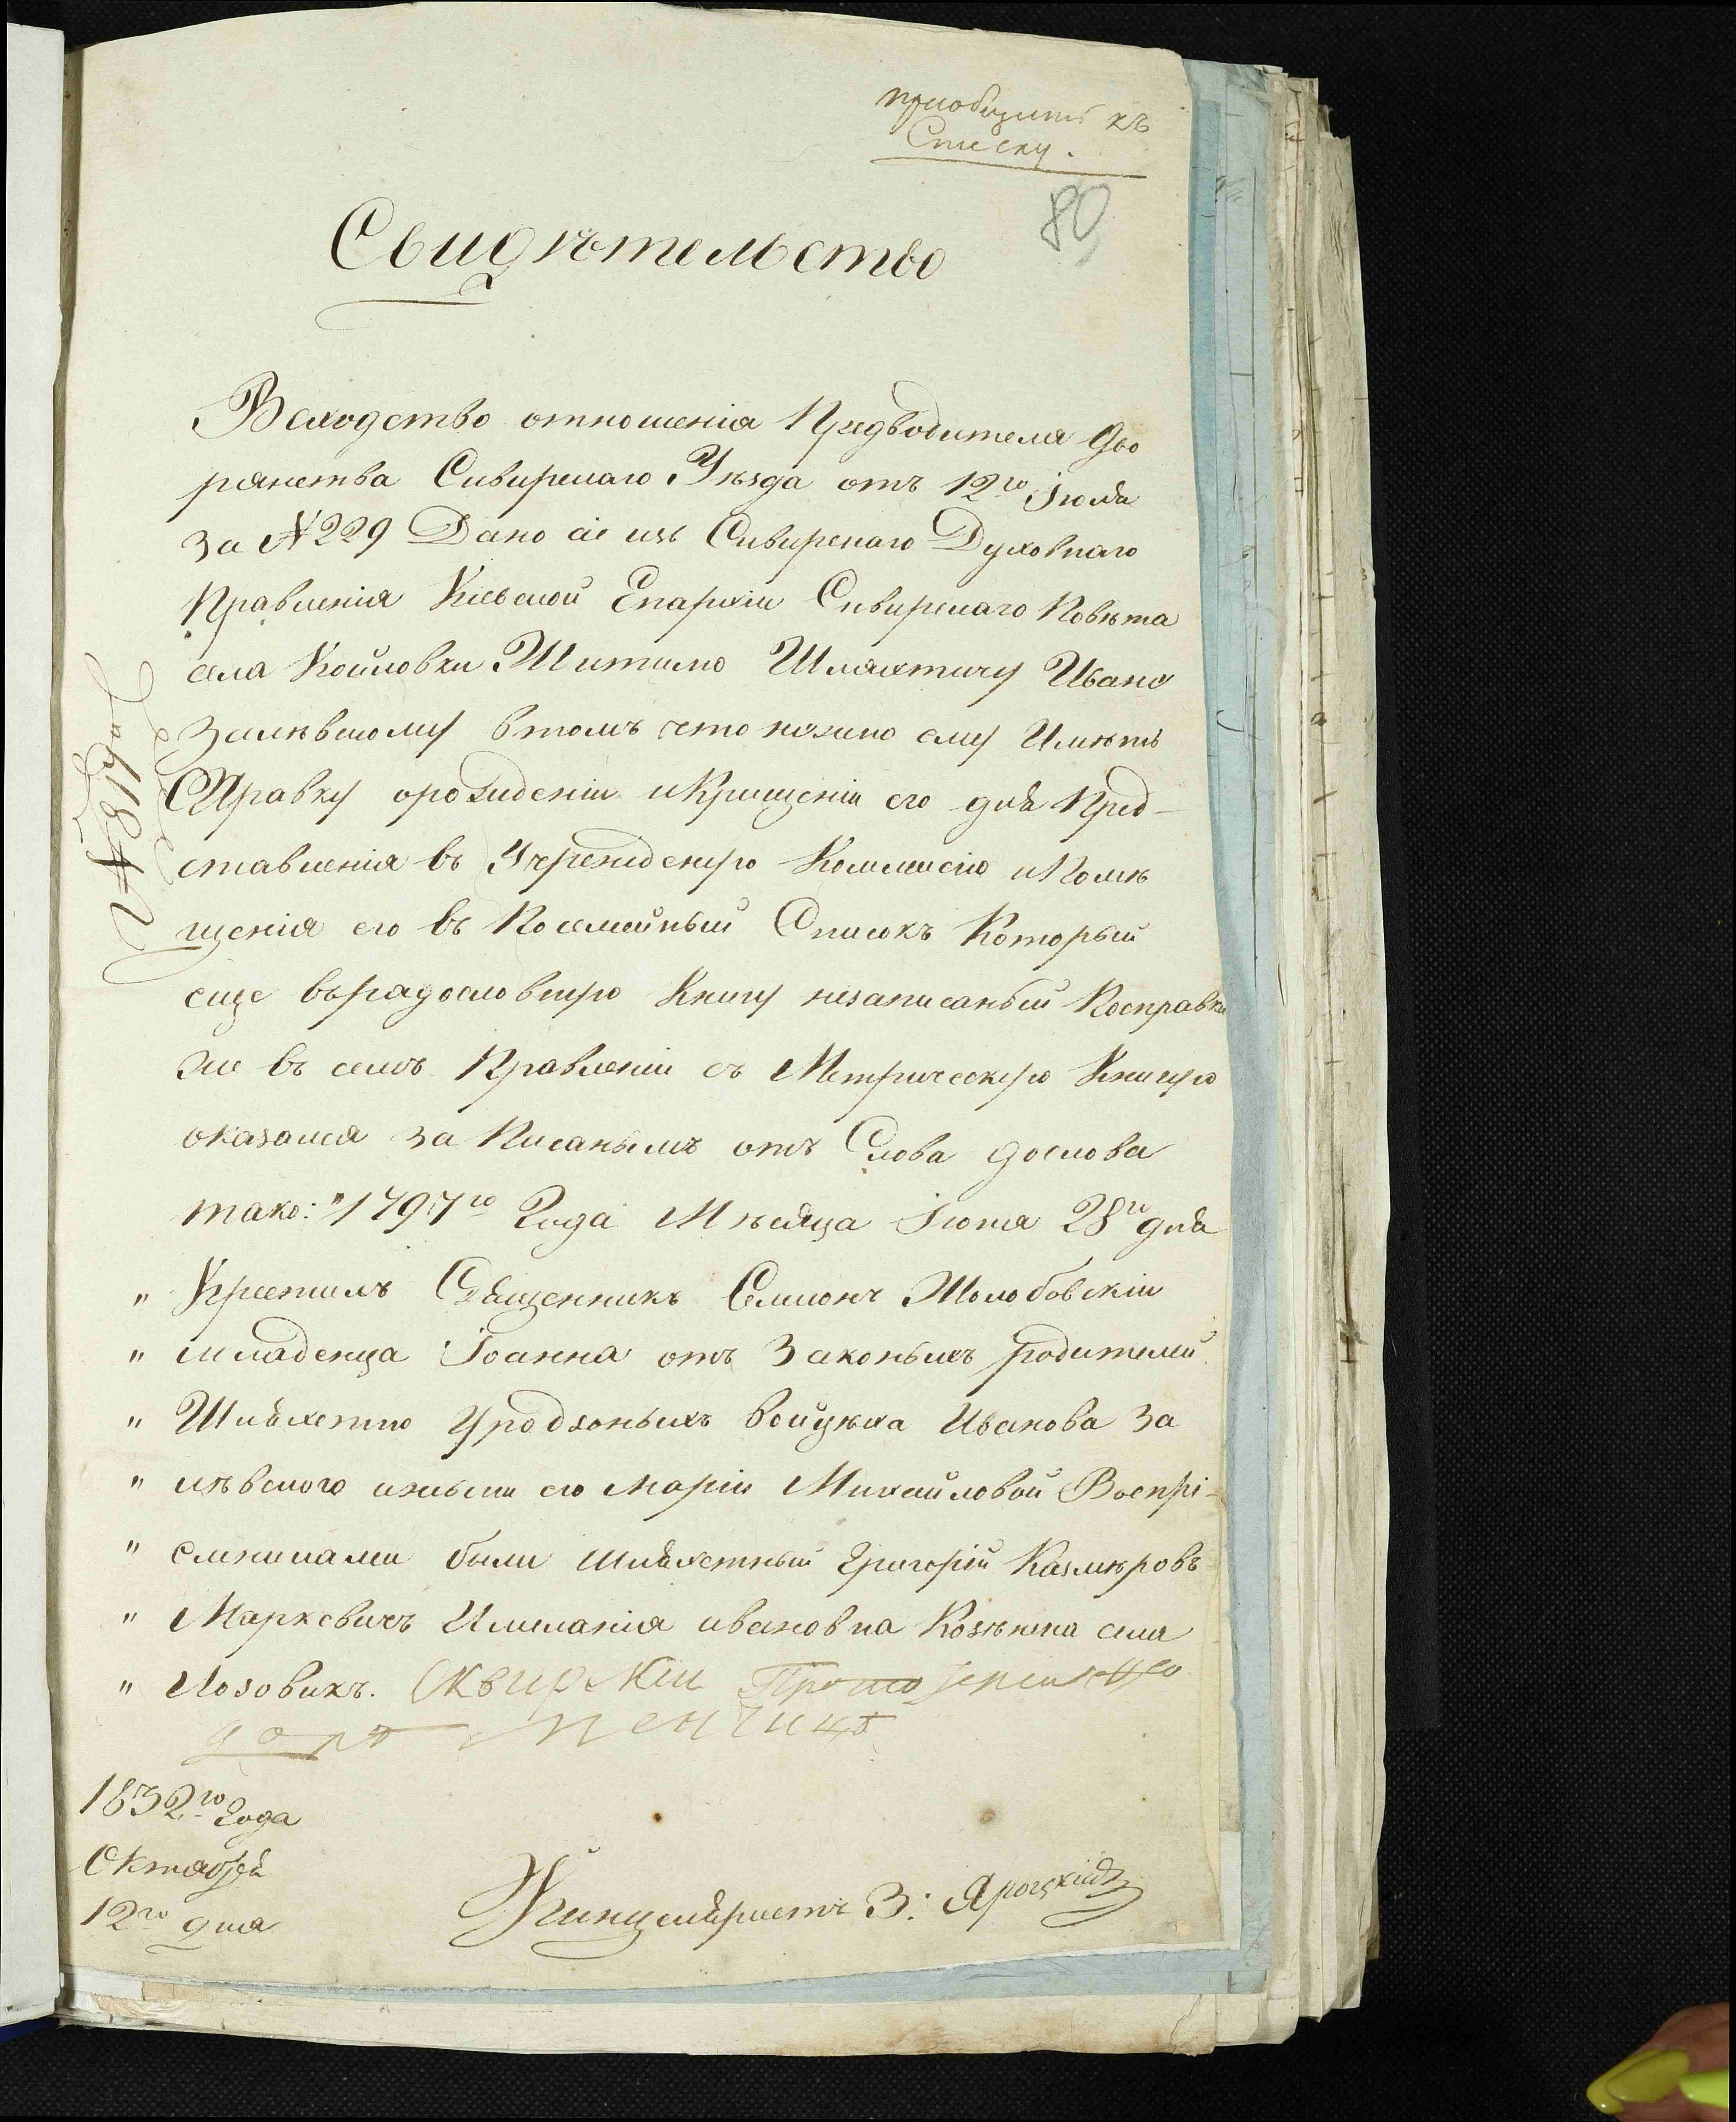 приобщить къ
Списку.
80
Свидѣтельство
Всходство отношенія Предводителя дво
рянства Сквирскаго Уѣзда отъ 12го Іюля
За №229 Дано сіе изъ Сквирскаго Духовнаго
Правленія Кіевской Епархіи Сквирскаго Повѣта
села Койловки Шляхтичу Ивану
Залѣвскому втомъ что нужно ему Имѣть
СПравку орождении иКрещеніи его для Пред-
ставленія въ Учрежденую Коммисію иПомѣ
щенія его въ Посемейный Списокъ Который
еще въ радословную Книгу незаписанъ Посправки
же въ семъ Правленіи съ Метрическую Книгую
оказался за Писанымъ отъ Слова дослова
тако: "1797го Года Мѣсяца Іюня 28го дня
" Крестилъ Священникъ Симионъ Жолобовскій
" младенца Іоанна отъ Законыхъ родителей
" Шляхетно Уродзоныхъ войцѣха Иванова За
" лѣвского ижены его Маріи Михайловой Воспрі-
" емниками были шляхетный Григорій Казмѣровъ
" Маркевичъ Имеланія ивановна села
" Лозовикъ. Сквирскій Протоіерей
1832го Года
Октября
12го дня
Канцеляристъ З: Яроцкій
№184